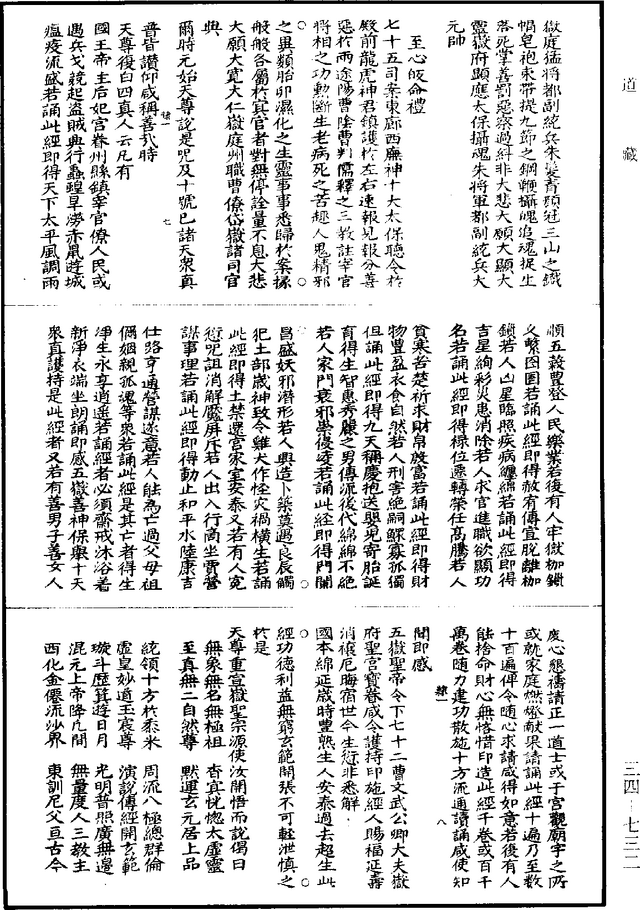 道藏
嶽庭猛將都副統兵朱髮青頭冠三山之鐵
帽皂袍束帶提九節之鋼鞭攝魄追魂捉生
落死掌善罰惡察過糾非大悲大願大顯大
靈嶽府顯應太保攝魂朱將軍都副統兵大
元帥
至心皈命禮
七十五司案東廊西廡神十大太保聽令於
殿前龍虎神君領護於左右速報見報分善
惡於兩途陽曹陰曹判儒釋之三教註宰官
將相之功勳斷生老病死之苦趣人鬼精邪
之異類胎卵濕化之生靈事事悉歸於案據
般般各屬於冥官者對無停詮量不息大悲
大願大寬大仁嶽庭州職曹僚岱嶽諸司官
典
爾時元始天尊說是呪及十號已諸天衆真
普皆讚仰咸稱善哉時
天尊復白四真人云凡有
國王帝主后妃宫眷州縣鎮宰官僚人民或
遇兵戈競起盜賊興行蠡蝗旱澇赤鼠遊城
瘟疫流盛若誦此經即得天下太平風調雨
順五穀豊登人民樂業若後有人牢獄枷鎖
久繫囹圄若誦此經即得赦有傳宣脫離枷
鎖若人凶星臨照疾病纏綿若誦此經即得
吉星絢彩災患消除若人求官進職欲顯功
名若誦此經即得祿位遷轉榮任高騰若人
貧寒苦楚祈求財帛啟富若誦此經即得財
物豊盈衣食自然若人刑害絕嗣鰥寡孤獨
但誦此經即得九天稱慶抱送嬰兒寄胎誕
育得生智惠秀麗之男傳流後代綿綿不絕
若人家門衰邪祟侵凌若誦此經即得門閫
昌盛妖邪潛形若人興造卜築莫遇良辰觸
犯土部歲神致令雞犬作怪灾禍橫生若誦
此經即得土禁還宫家室安泰又若有人寃
愆呪詛消解厭屏斥若人出入行商坐賈營
謀事理若誦此經即得動止和平水陸康吉
仕路亨通營謀遂意若人能為亡過父母祖
儞姻親孤魂等衆若誦此經是其亡者得生
淨生永享逍遥若誦經者必須齋戒沐浴着
新淨衣端坐朗誦即感五嶽善神保舉十天
衆直護持是此經者又若有善男子善女人
虔心懇禱請正一道士或于宫觀廟宇之所
或就家庭燃燈獻果請誦此經十遍乃至數
十百遍俾令隨心求請咸得如意若後有人
能捨命財心無悋惜印造此經千卷或百千
萬卷隨力建功散施十方流通讀誦咸使知
聞即感
五嶽聖帝令下七十二曹文武公卿大夫嶽
府聖宫寶眷咸令護持印施經人賜福延壽
消禳厄晦宿世今生愆非悉解
國本綿延歲時豊熟生人安泰過去超生此
經功德利益無窮玄範開張不可輕泄慎之
於是
天尊重宣嶽聖宗源使汝開悟而說偈曰
無象無名無極祖　杳冥恍惚太虛靈
至真無二自然尊　默運玄元居上品
統領十方於黍米　周流八極總群倫
虛皇妙道玉宸尊　演說傳經開玄範
璇斗歷箕遊日月　光明普照廣無邊
混元上帝降凡間　無量度人三教主
西化金僊流沙界　東訓尼父亘古今
三四－七三二